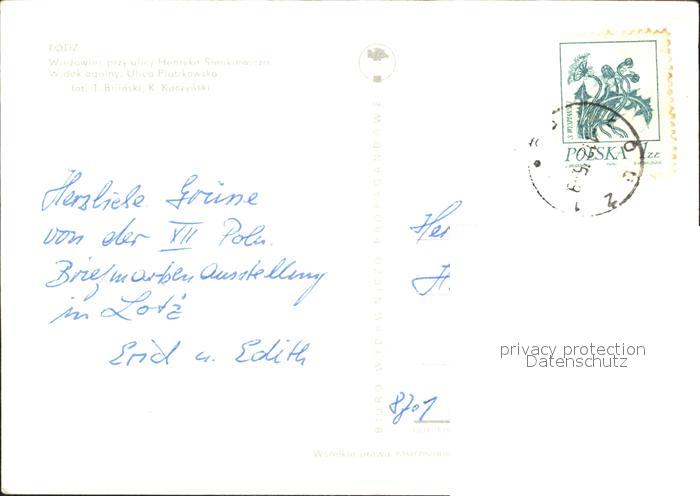 ŁÓDŹ
Wieżowiec przy ulicy Henryka Sienkiewicza
Widok ogólny. Ulica Piotrkowska
fot. T. Biliński, K. Kaczyński
POLSKA 1 ZŁ
Herzliche Grüne
von der XII Poln.
Briefmarkenausstellung
in Lotz
Erid u. Edith
BIURO WYDAWNICZO PROPAGANDOWE
Her
H
8701
privacy protection
Datenschutz
Wszelkie prawa zastrzeżone